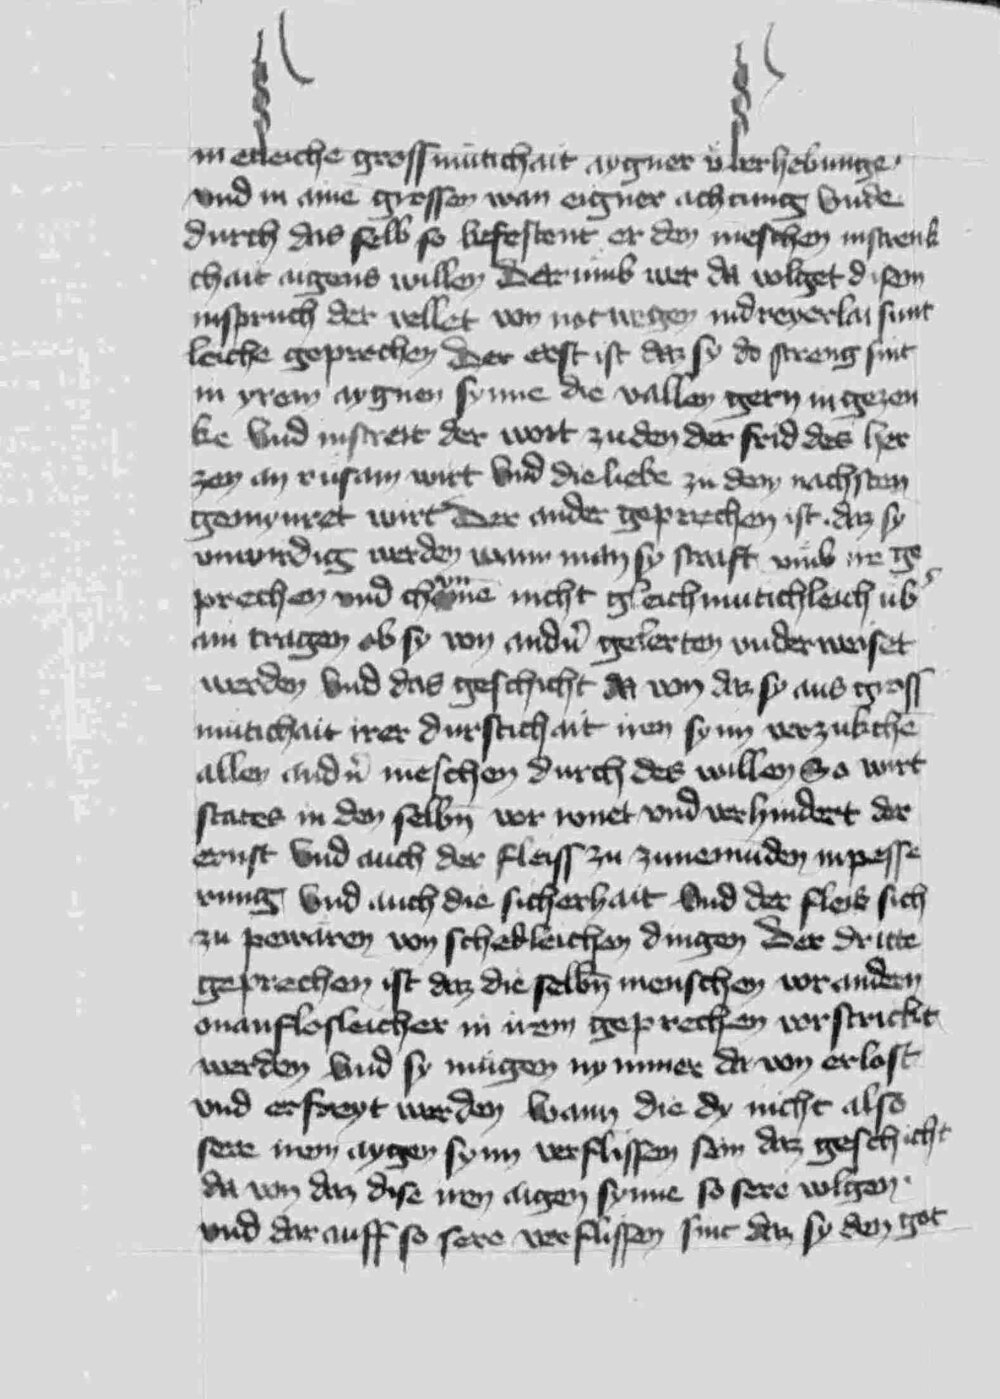 in etleiche grossmütichait aygner überhebunge.
und in aine grossen wan eigner achtung Unde
durch das selb so befestent er den meschen in strenk
chait aigens willen Dar umb wer da volget disem
inspruch der vellet von not wegen in dreyerlai sunt
leiche geprechen Der erst ist daz sy do streng sint
in yrem aygnen synne die vallen gern in gezen
ke Und in streit der wort zu den der frid des her
zen an rusam wirt Und die liebe zu dem nachsten
gemynret wirt Der ander geprechen ist. daz sy
unwirdig werden wann man sy straft umb ire ge
prechen und nicht gleichmutichleich üb̕
ain tragen ob sy von andn̄ gelerten underweiset
werden Und das geschicht da von daz sy aus gross
mütichait irer durstichait iren synn verzukche
allen andn̄ meschen durch des willen So wirt
states in den selbn̄ und verhindert der
ernst Und auch der fleiss zu zunemunden in pesse
rung Und auch die sicherhait Und der fleis sich
zu pewaren von schedleichen dingen Der dritte
geprechen ist daz die selbn̄ menschen vor andern
onauflosleicher in irem geprechen vorstrickt
werden Und sy mugen nymmer da von erlost
und erfreyt werden Wann die dy nicht also
sere irem aygen synn verflissen sein daz geschicht
da von daz dise iren aigen synne so sere volgen.
und dar auff so sere verflissen sint daz sy den got